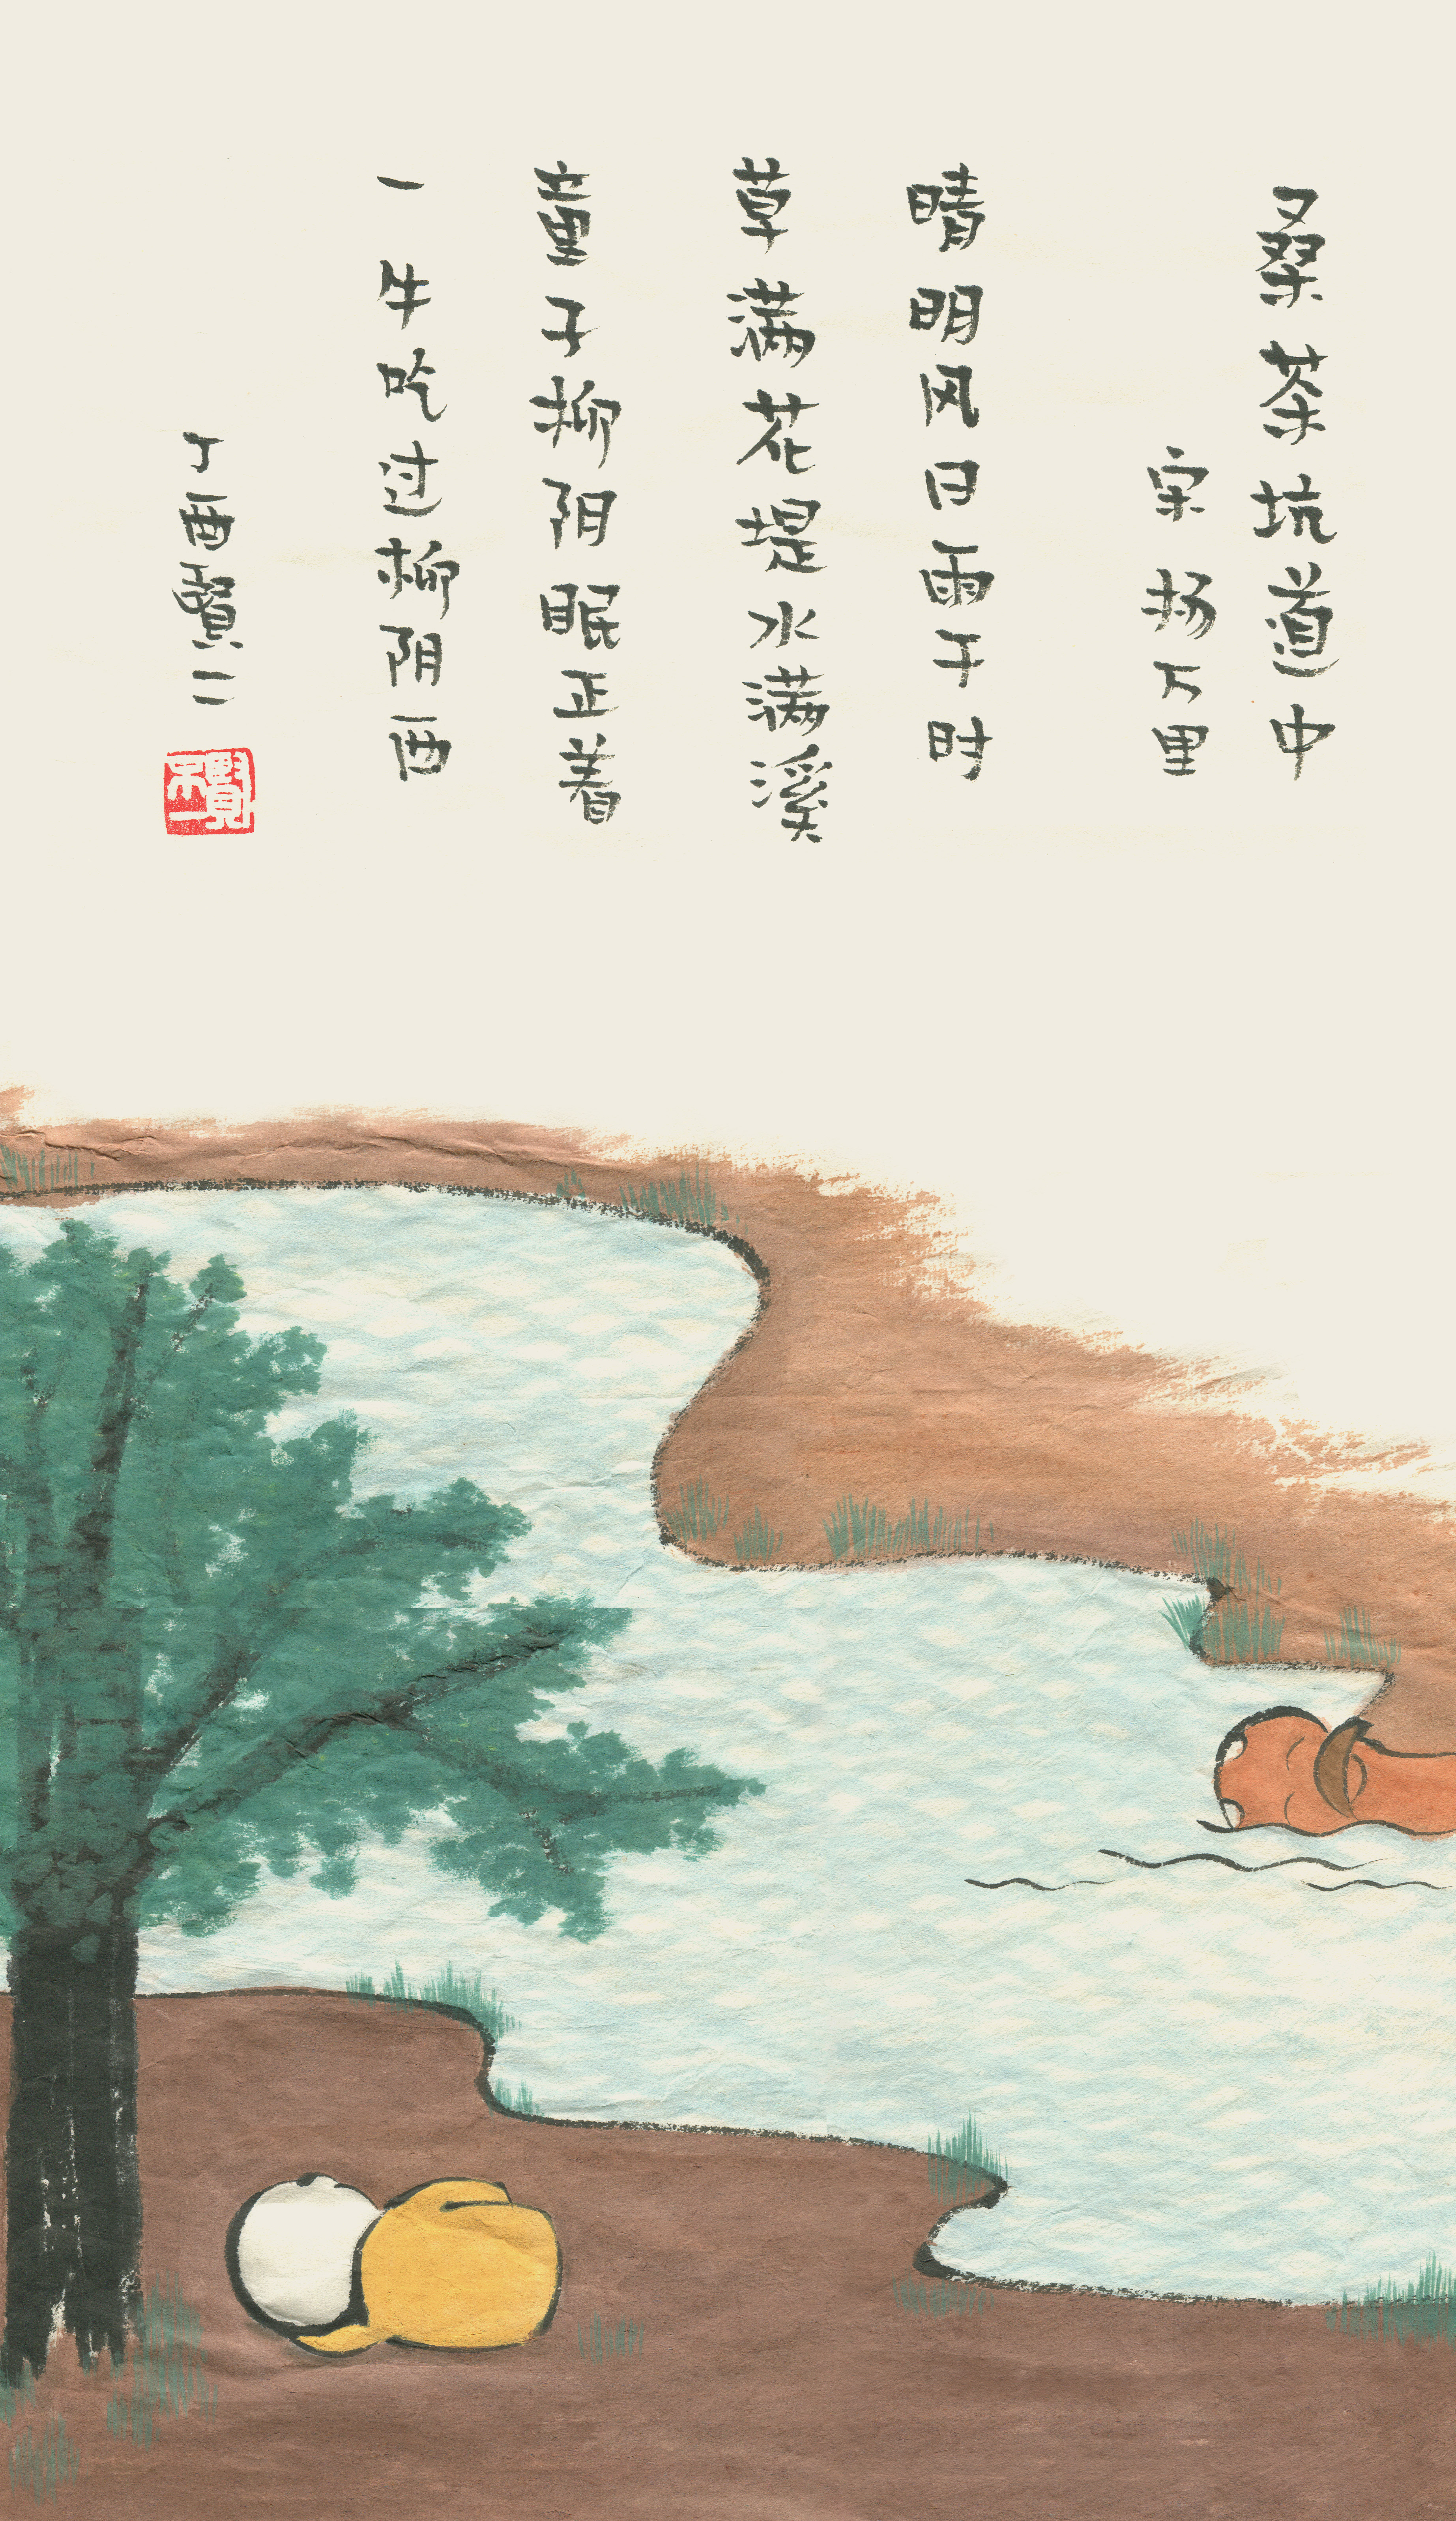 桑茶坑道中
宋杨万里
晴明风日雨干时
草满花堤水满溪
童子柳阴眠正着
一牛吃过柳阴西
丁酉賢二